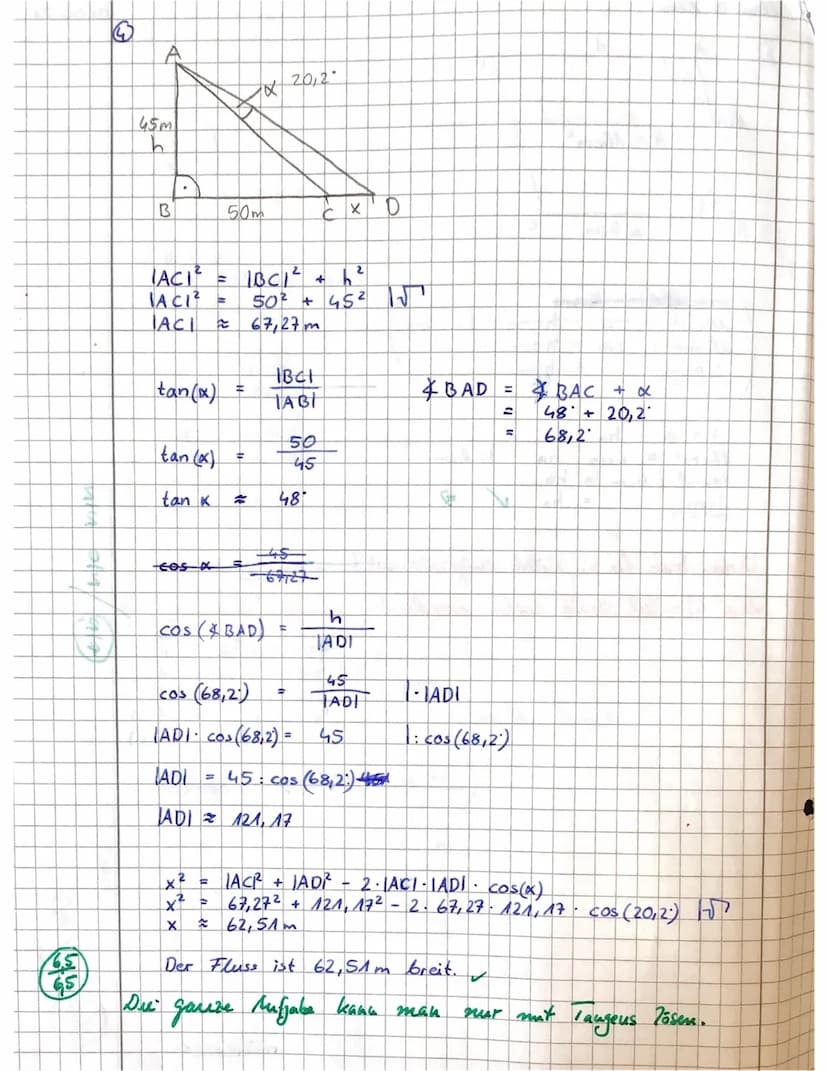 4
A
α 20,2°
45m
h
B 50m C x D
|AC|² = |BC|² + h²
|AC|² = 50² + 45² |√
|AC| ≈ 67,27m
tan(α) = |BC| / |AB|
∢BAD = ∢BAC + α
= 48° + 20,2°
= 68,2°
tan(α) = 50 / 45
tan α ≈ 48°
cos α = 45 / 67,27
cos(∢BAD) = h / |AD|
cos(68,2°) = 45 / |AD| |·|AD|
|AD|·cos(68,2) = 45 |:cos(68,2°)
|AD| = 45 : cos(68,2°)
|AD| ≈ 121,17
x² = |AC|² + |AD|² - 2·|AC|·|AD|·cos(α)
x² = 67,27² + 121,17² - 2·67,27·121,17·cos(20,2°) |√
x ≈ 62,51m
Der Fluss ist 62,51m breit. ✓
6,5 / 6,5
Die ganze Aufgabe kann man nur mit Tangens lösen.